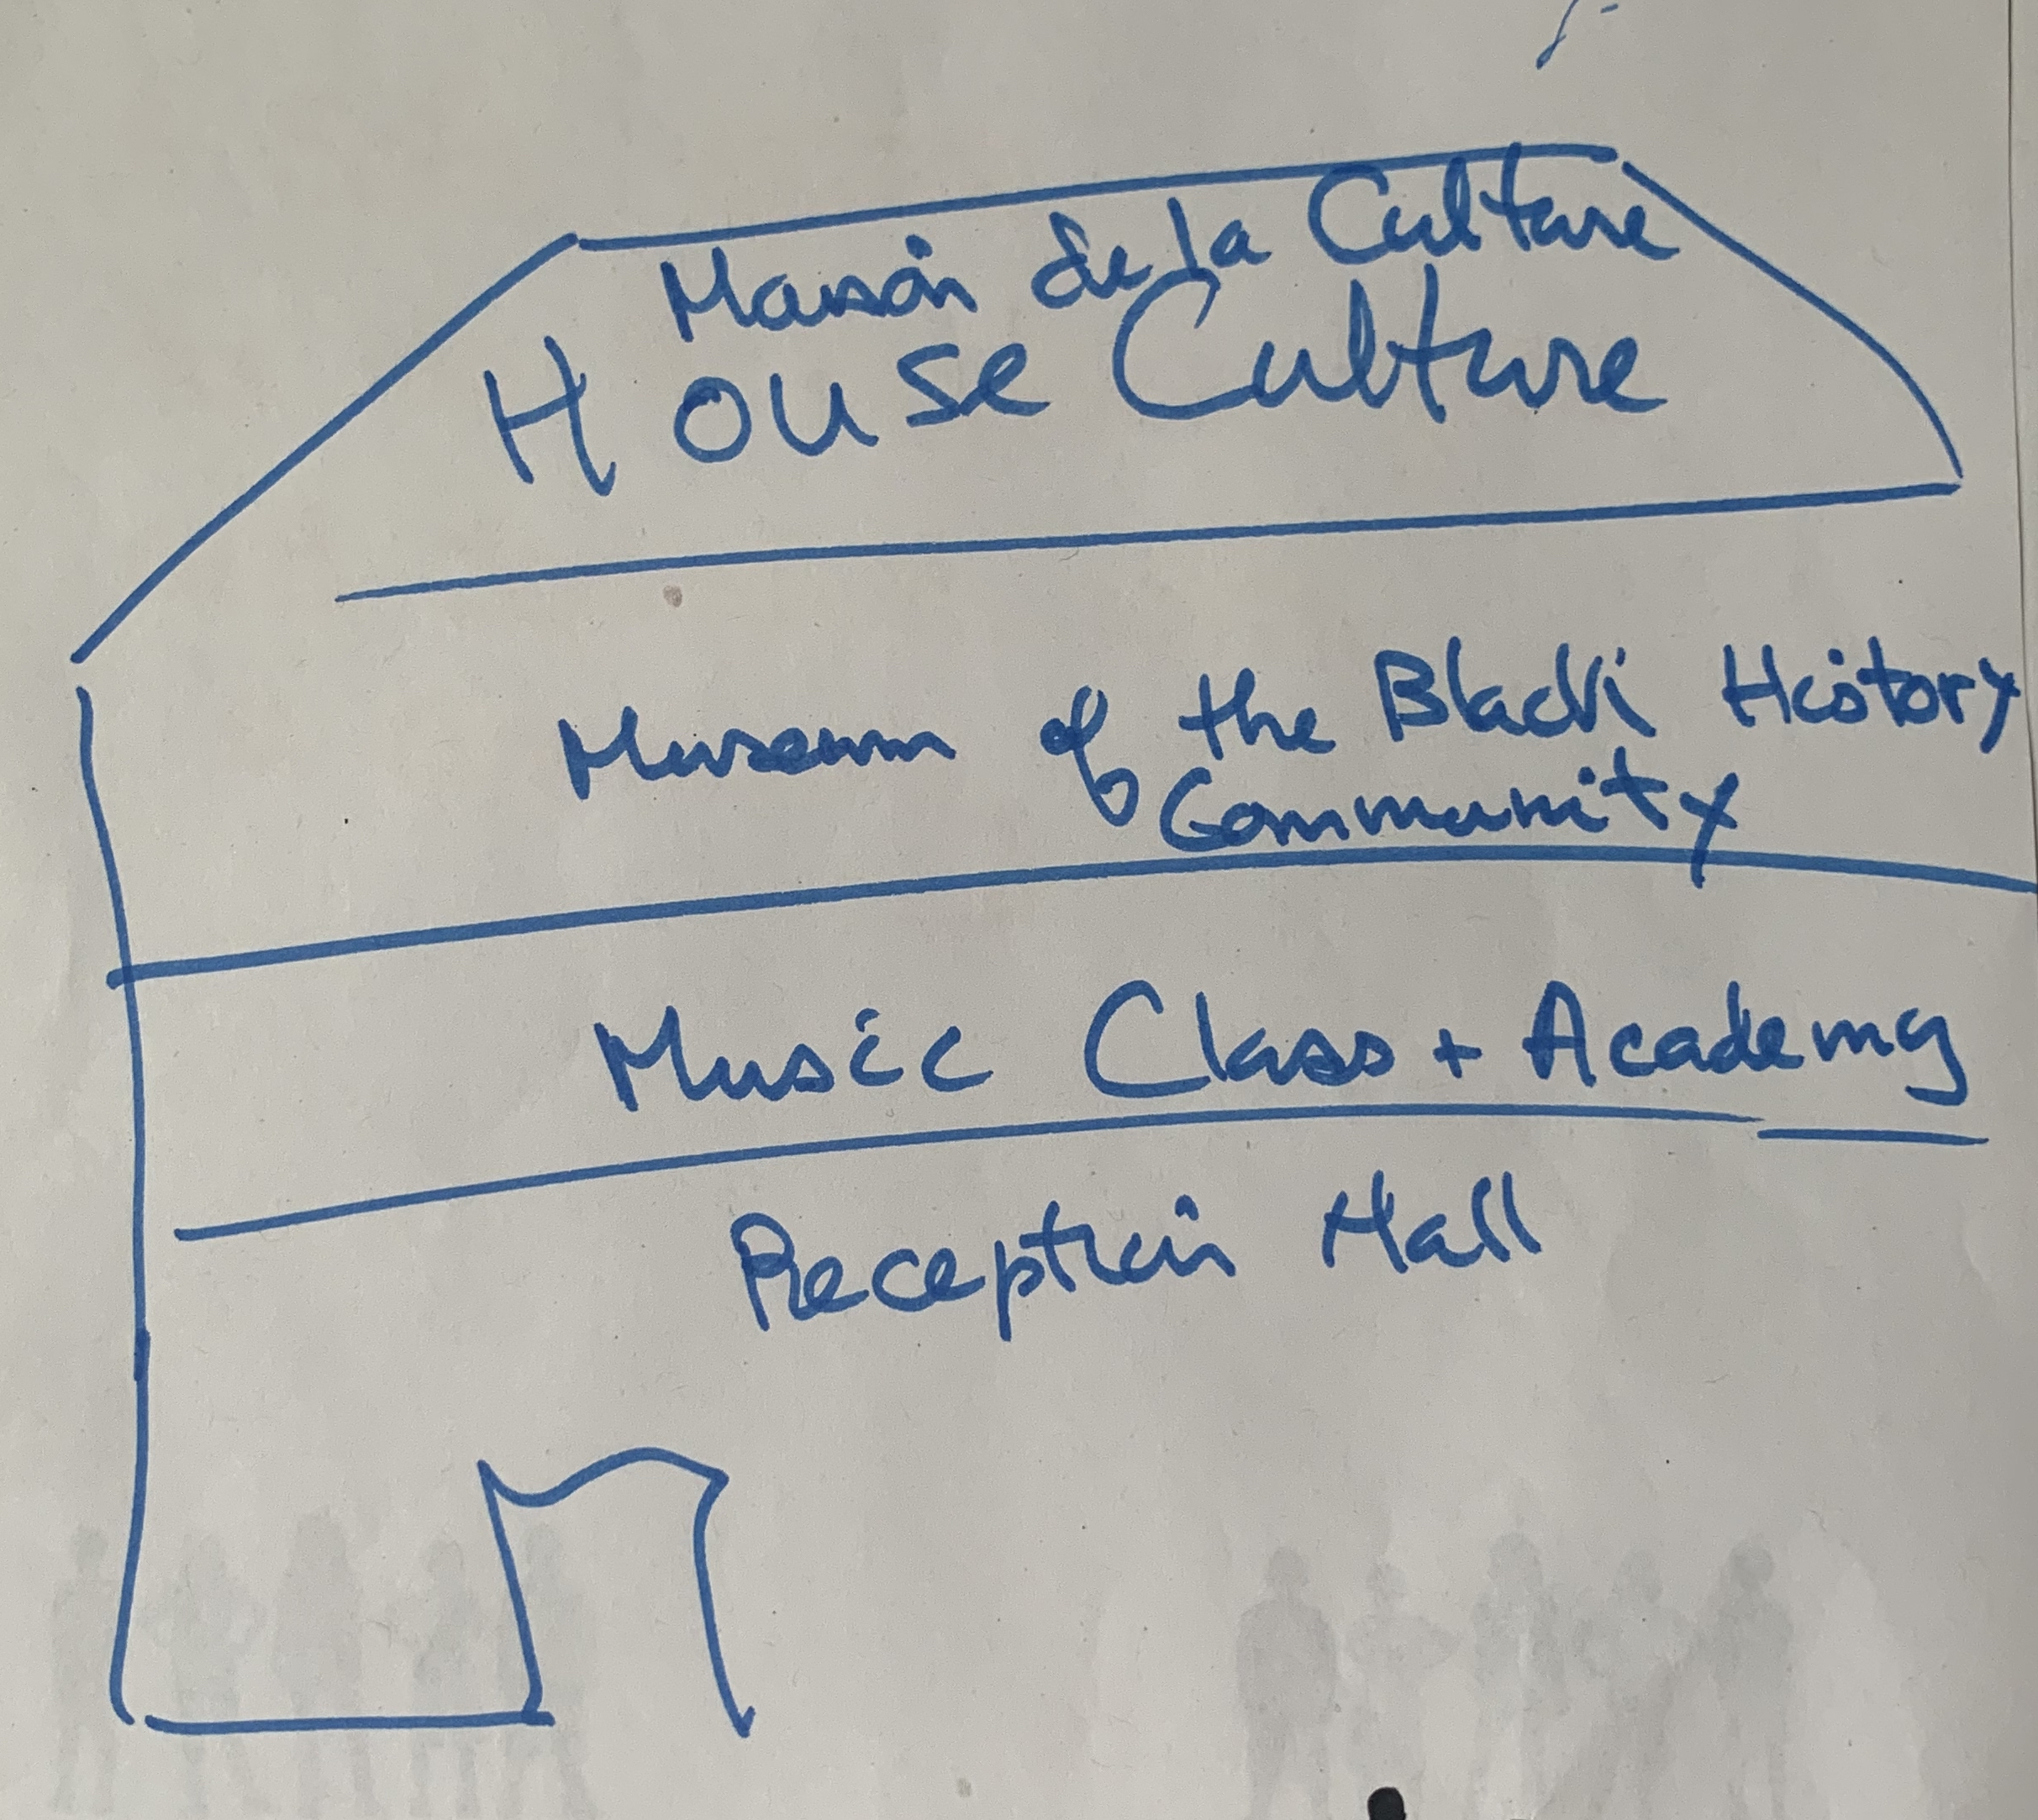 Maison de la Culture
House Culture
Museum of the Black History
Community
Music Class + Academy
Reception Hall